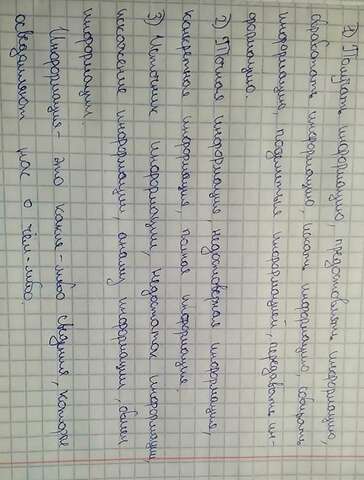 1) Получать информацию, предоставлять информацию,
обработать информацию, искать информацию, собирать
информацию, поделиться информацией, передавать ин-
формацию.
2) Точная информация, недостоверная информация,
конкретная информация, полная информация.
3) Источник информации, недостаток информации,
искажение информации, анализ информации, обмен
информации.
Информация - это какие-либо сведения, которые
осведомляют нас о чём-либо.